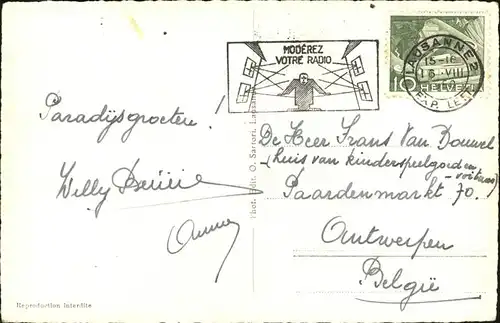 MODÉREZ
VOTRE RADIO
LAUSANNE 2
15-16
16 · VIII
EXP. LET
10 HELVETIA
Paradijsgroeten !
Willy
De Heer Frans Van Bouwel
(huis van kinderspeelgoed en
voituren)
Paardenmarkt 70.
Antwerpen
België
Phot. Edit. O. Sartori, Lausanne
Reproduction interdite